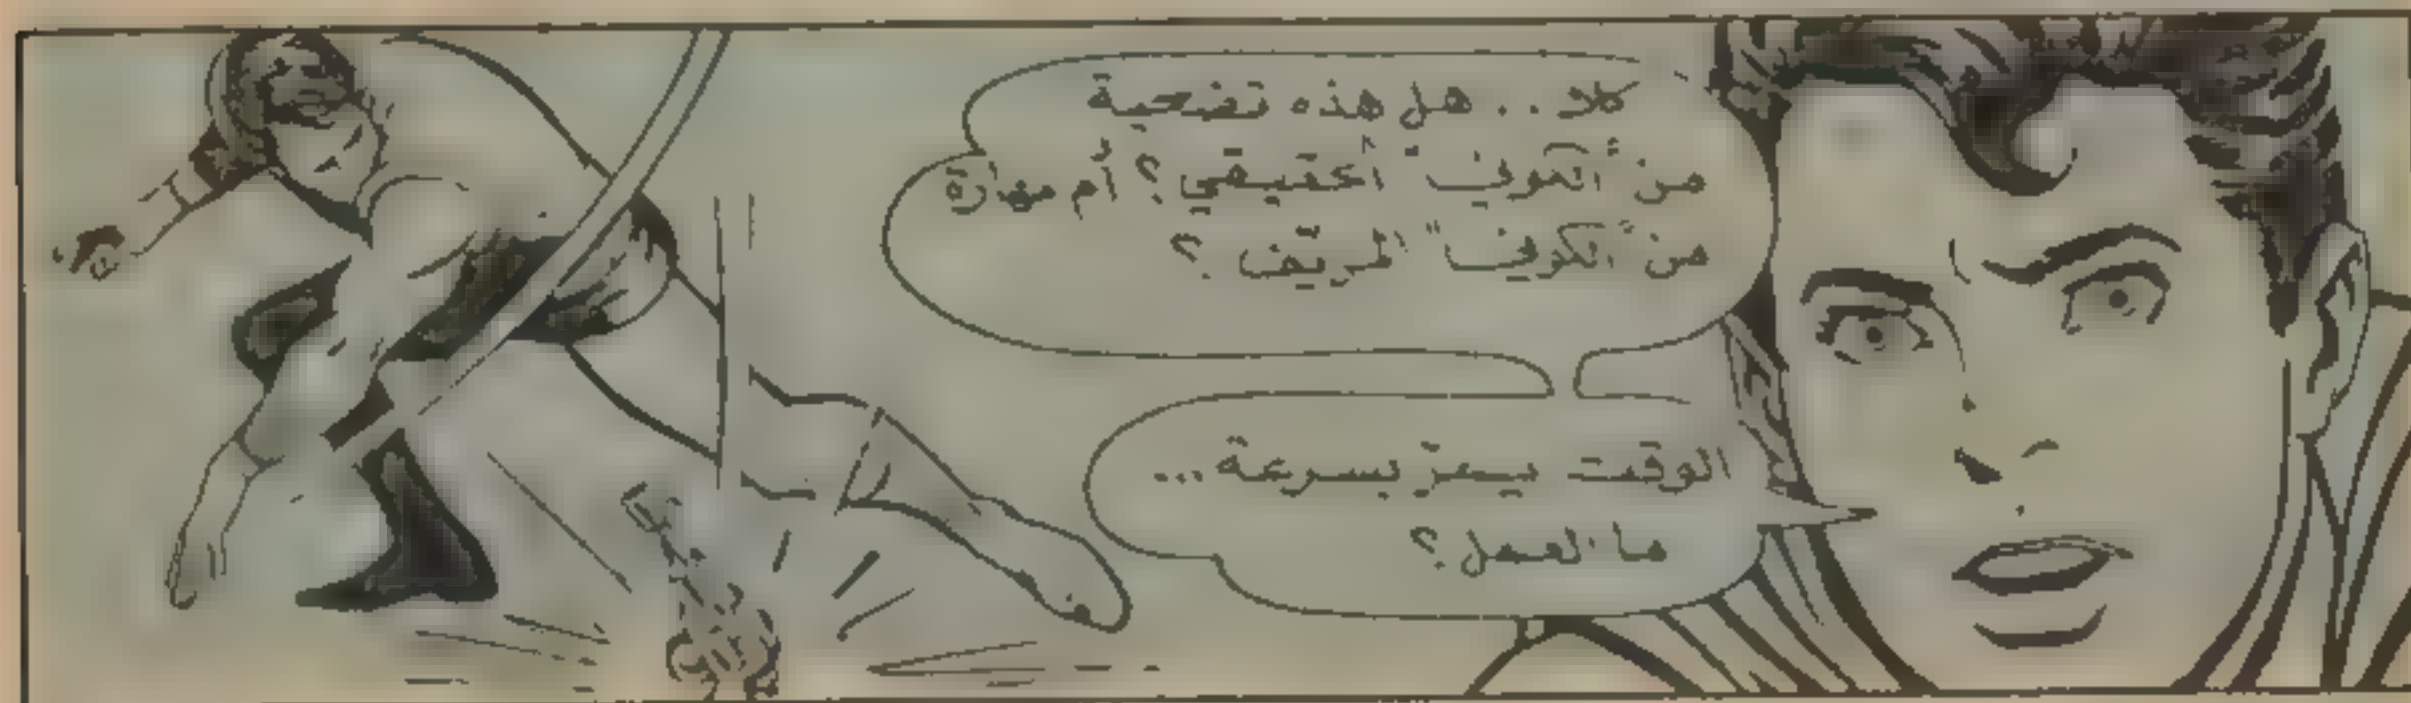 كلا .. هل هذه تضحية
من "الكوفي" الحقيقي؟ أم مهارة
من "الكوفي" المزيّف؟
الوقت يمرّ بسرعة...
ما العمل؟